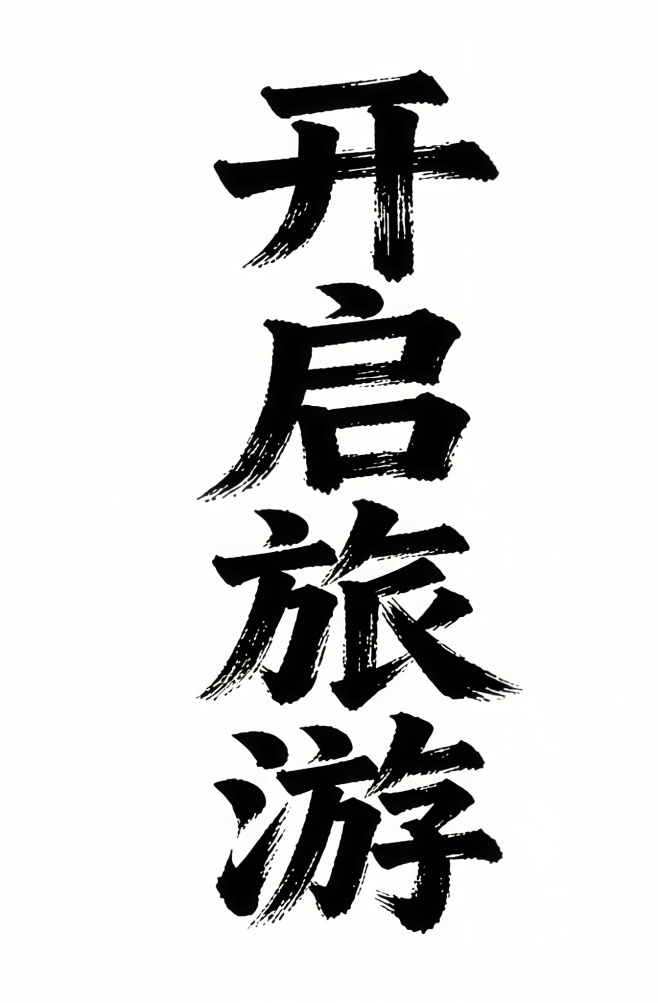 开启旅游